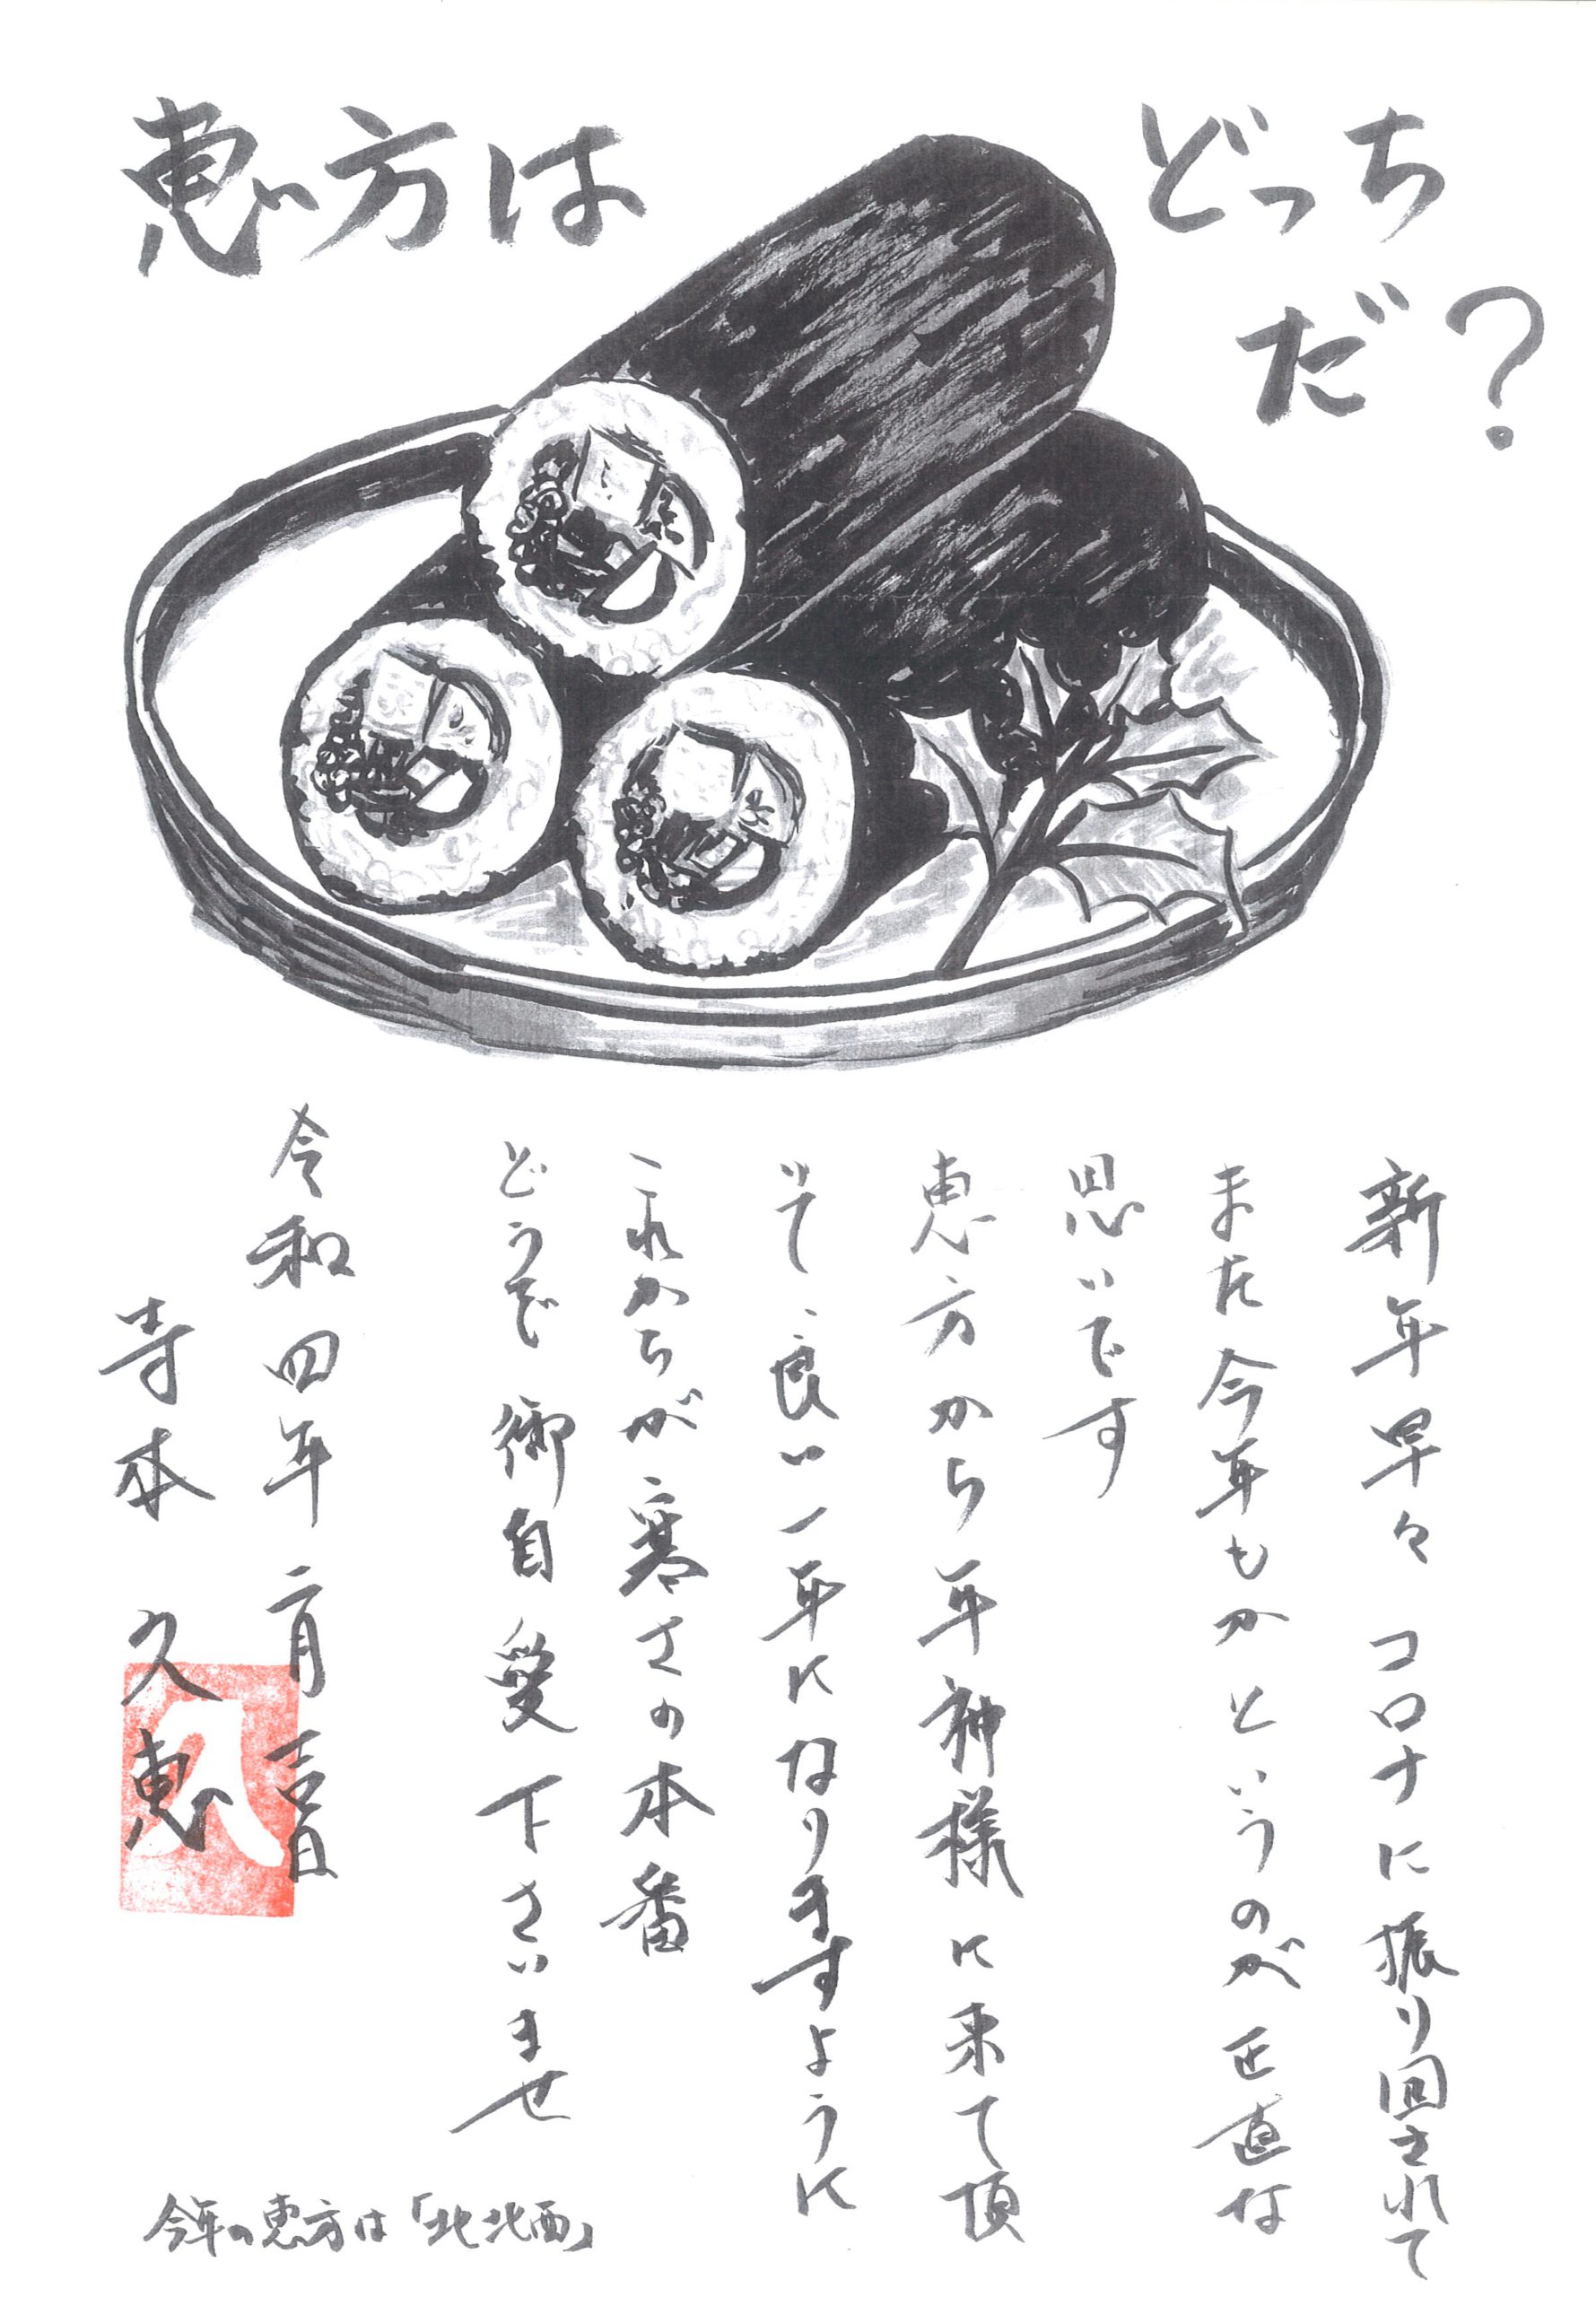 恵方は
どっち
だ?
新年早々 コロナに振り回されて
また今年もかというのが正直な
思いです
恵方から年神様に来て頂
いて、良い一年になりますように
これからが寒さの本番
どうぞ御自愛下さいませ
令和四年二月吉日
寺本久恵
久
今年の恵方は「北北西」